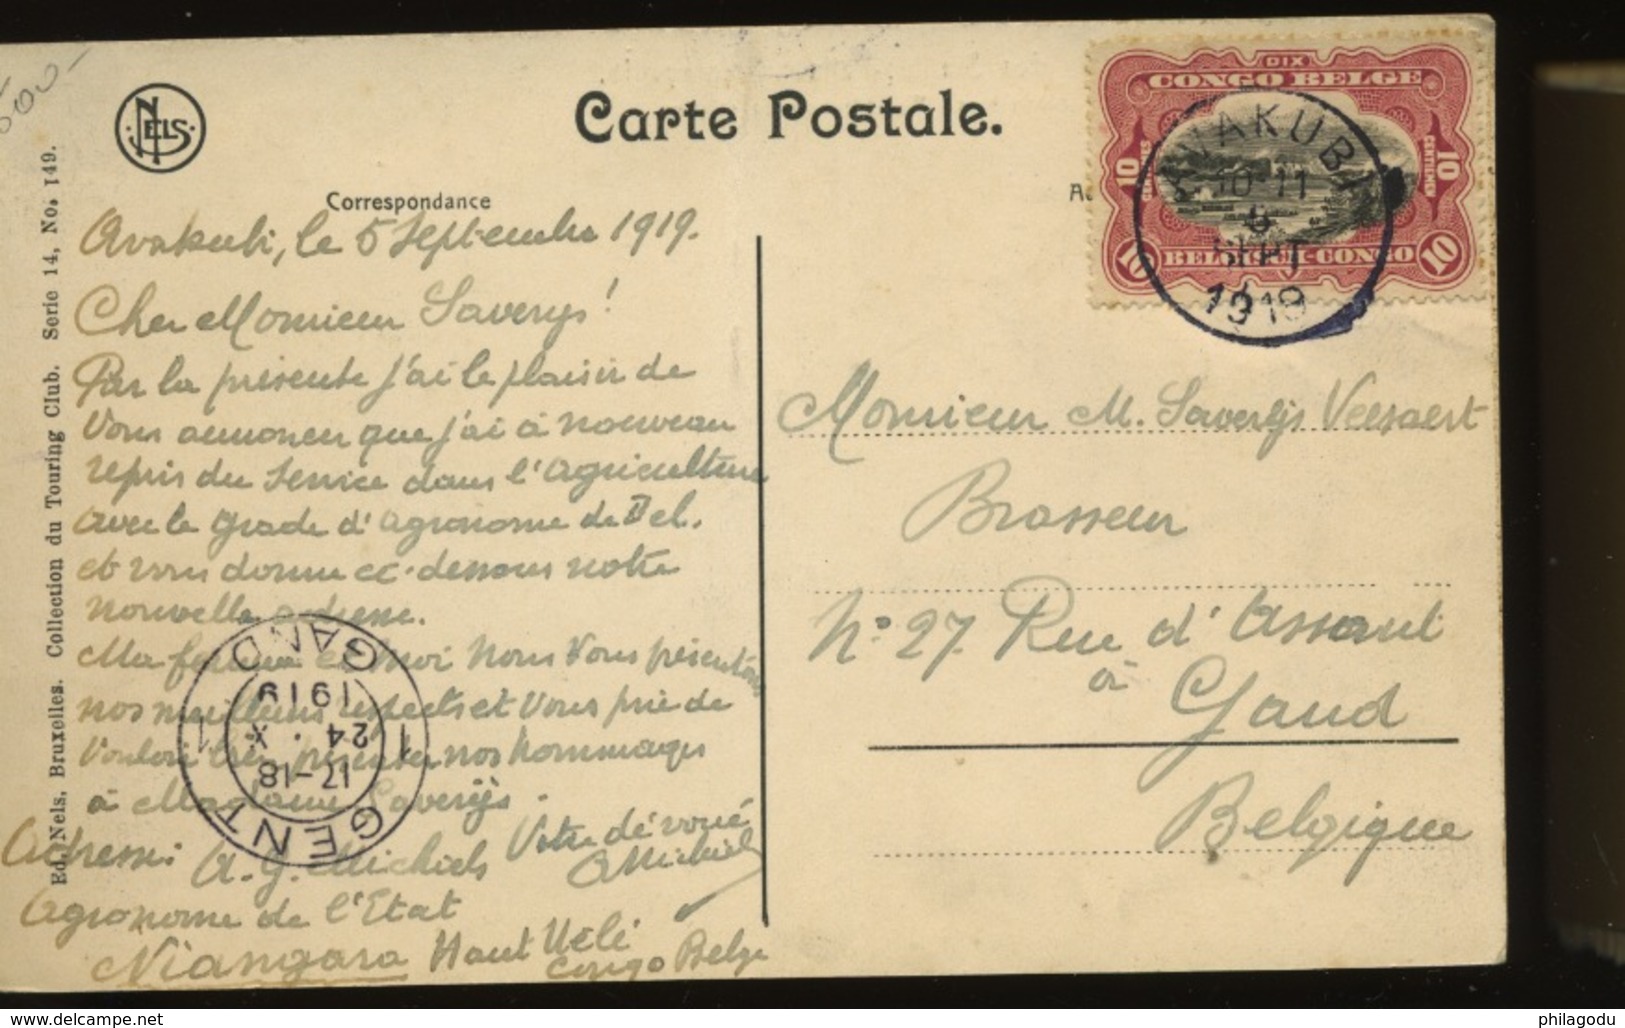 600-
NELS
Carte Postale.
Correspondance
Ed. Nels, Bruxelles. Collection du Touring Club. Serie 14, No. 149.
Avakubi, le 5 Septembre 1919.
Cher Monsieur Saverys!
Par la présente j'ai le plaisir de
Vous annoncer que j'ai à nouveau
repris du service dans l'agriculture
avec le grade d'agronome de II cl.
et vous donne ci-dessous notre
nouvelle adresse.
Ma femme et moi nous vous présentons
nos meilleurs respects et vous prie de
vouloir bien présenter nos hommages
à Madame Saverijs.
Votre dévoué
AMichiels
Adresse: A. G. Michiels
Agronome de l'Etat
Niangara Haut Uélé
Congo Belge
GENT 1
17-18
24 . *
1919
1 GAND
DIX
CONGO BELGE
10 CENTIMES
10 CENTIEMEN
10 BELGISCH-CONGO 10
AVAKUBI
10-11
SEPT
1919
Monsieur M. Saverijs Veesaert
Brasseur
N° 27 Rue d'Assaut
à
Gand
Belgique
delcampe.net
philagodu